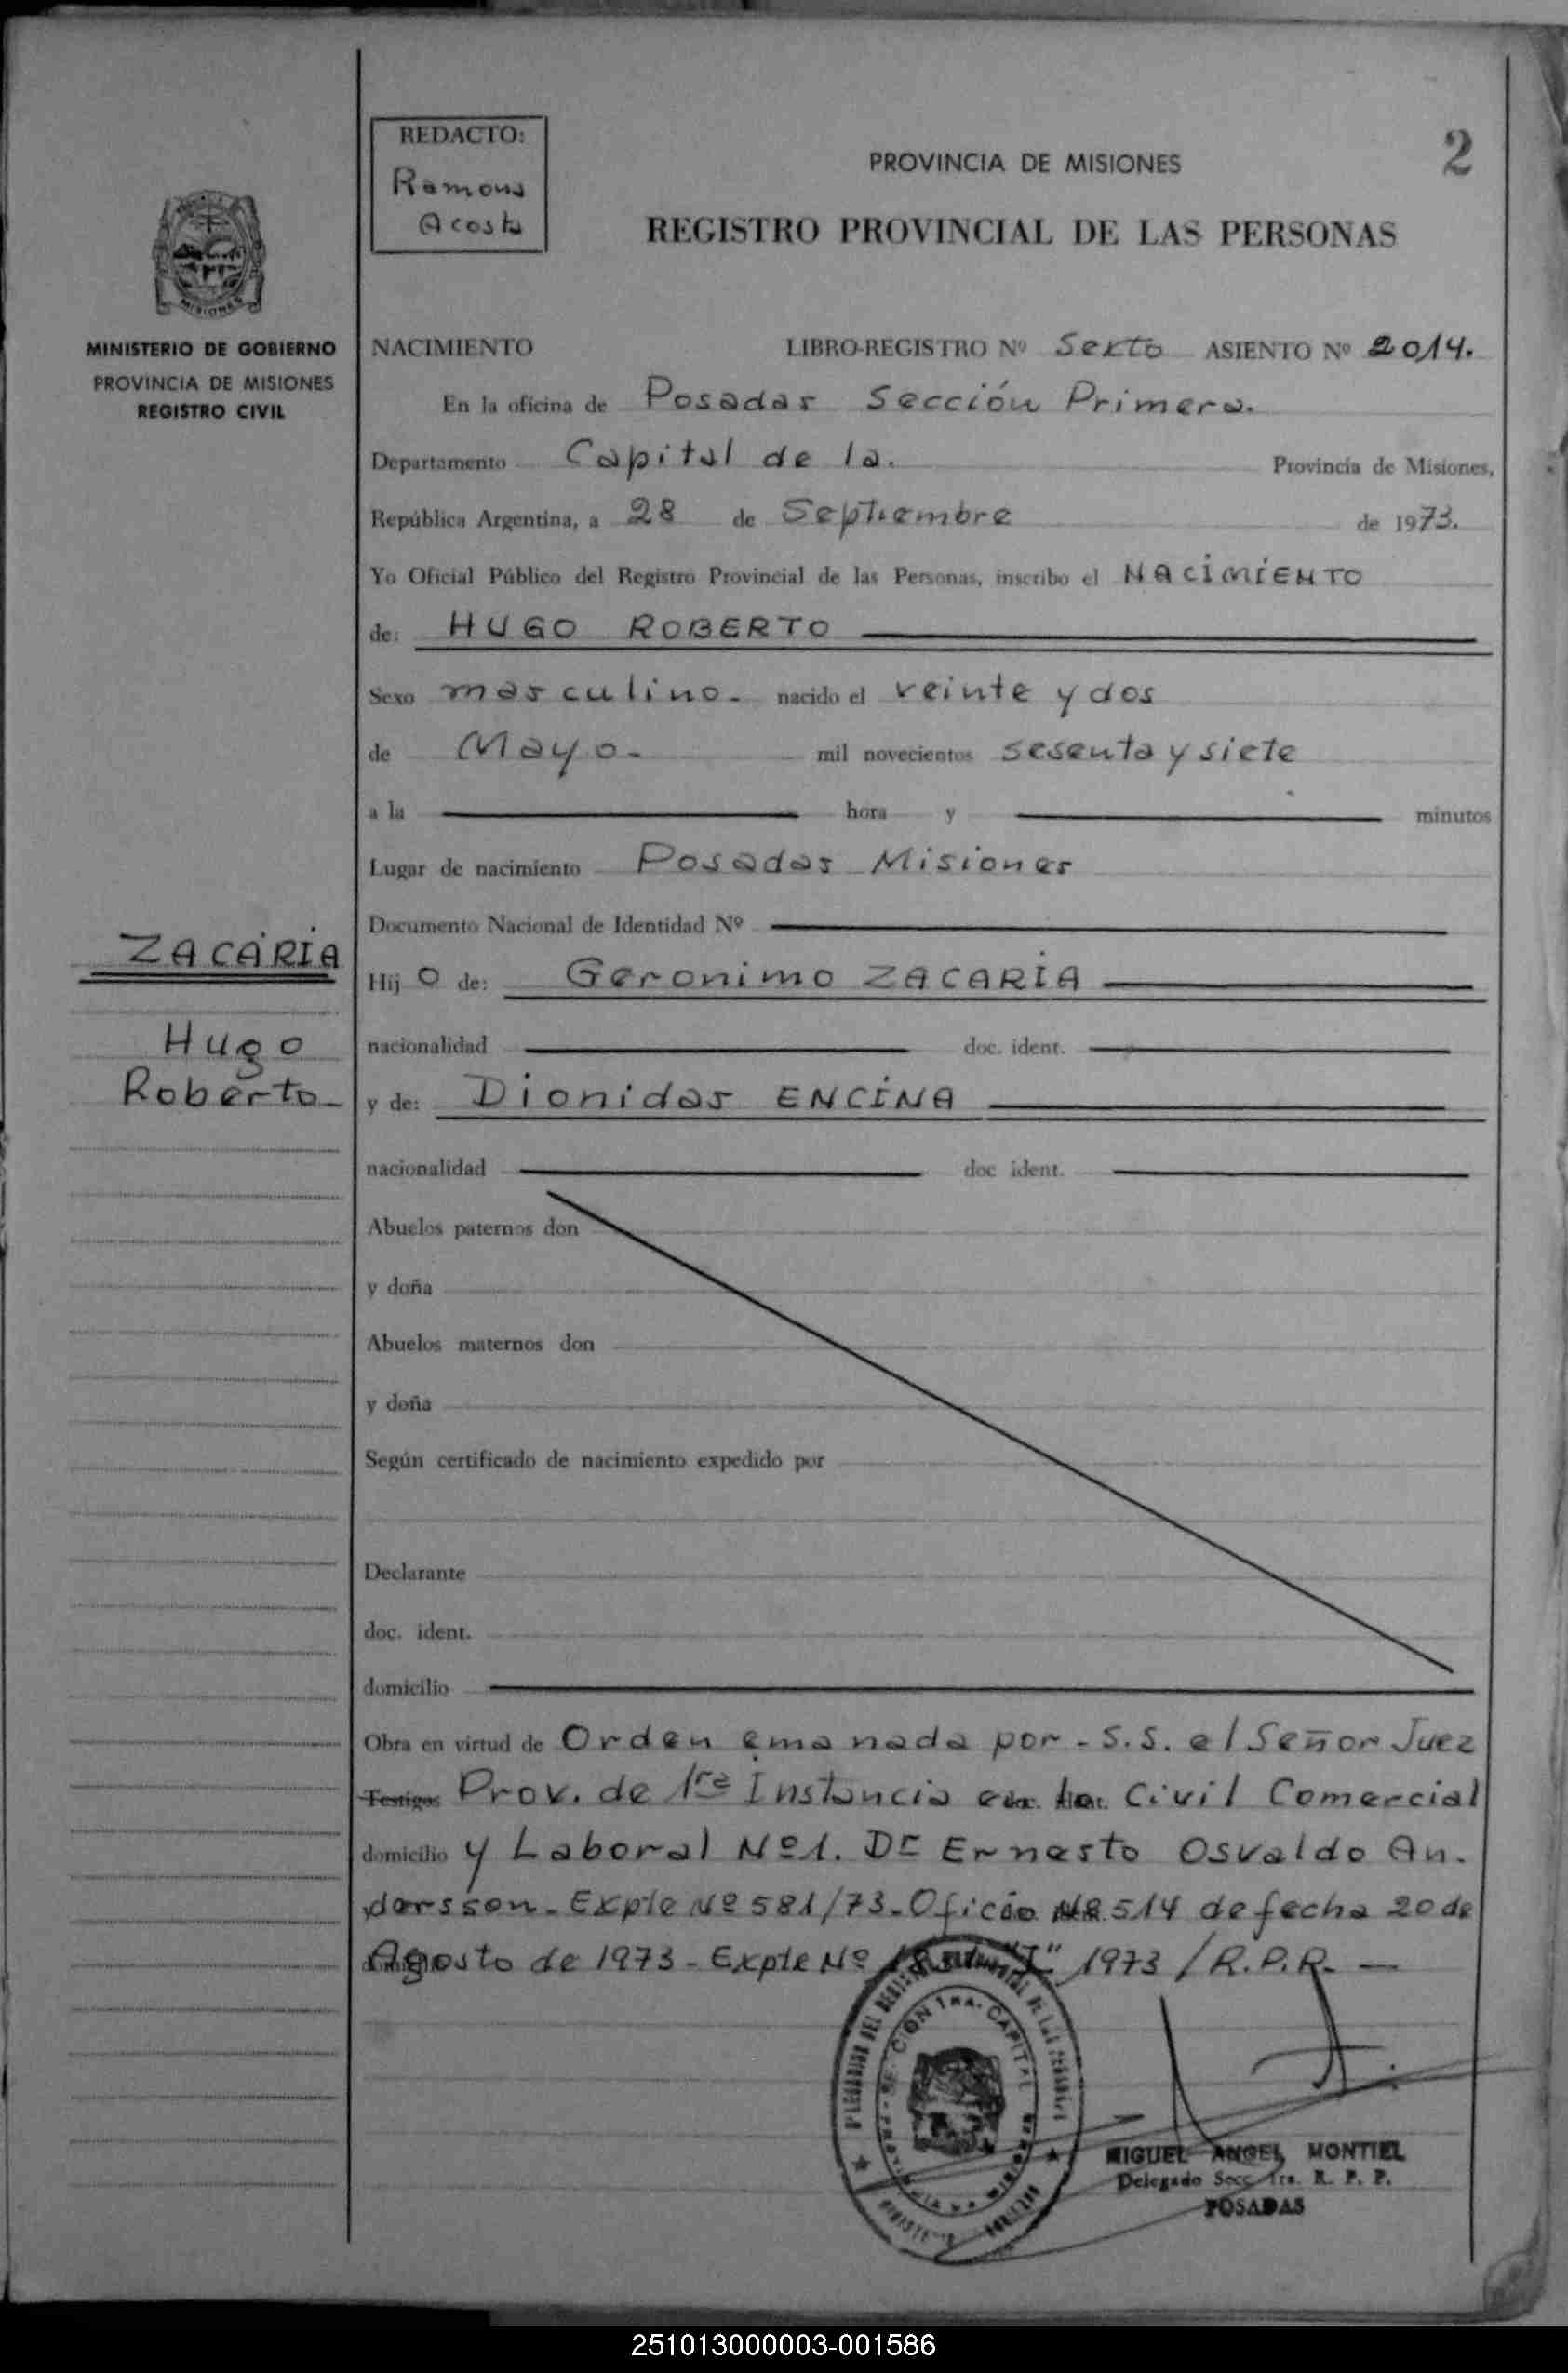 REDACTO:
Ramona
Acosta
PROVINCIA DE MISIONES
2
REGISTRO PROVINCIAL DE LAS PERSONAS
MISIONES
MINISTERIO DE GOBIERNO
PROVINCIA DE MISIONES
REGISTRO CIVIL
NACIMIENTO LIBRO-REGISTRO Nº Sexto ASIENTO Nº 2014.
En la oficina de Posadas Sección Primera.
Departamento Capital de la. Provincia de Misiones,
República Argentina, a 28 de Septiembre de 1973.
Yo Oficial Público del Registro Provincial de las Personas, inscribo el NACIMIENTO
de: HUGO ROBERTO
Sexo masculino- nacido el veinte y dos
de Mayo- mil novecientos sesenta y siete
a la hora y minutos
Lugar de nacimiento Posadas Misiones
Documento Nacional de Identidad Nº
ZACARIA
Hij o de: Geronimo ZACARIA
Hugo
nacionalidad doc. ident.
Roberto-
y de: Dionidas ENCINA
nacionalidad doc ident.
Abuelos paternos don
y doña
Abuelos maternos don
y doña
Según certificado de nacimiento expedido por
Declarante
doc. ident.
domicilio
Obra en virtud de Orden emanada por - S.S. el Señor Juez
Testigos Prov. de 1ra Instancia en lo Civil Comercial
domicilio y Laboral Nº1. Dr Ernesto Osvaldo An.
y darsson- Expte Nº 581/73- Oficio Nº 514 de fecha 20 de
Agosto de 1973 - Expte Nº "I" 1973 / R.P.R. -
SECCION 1RA. CAPITAL
MIGUEL ANGEL MONTIEL
Delegado Secc. 1ra. R. P. P.
POSADAS
251013000003-001586